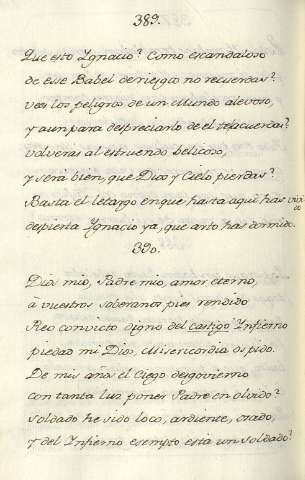 389.
Que esto Ygnacio? Como escandaloso
de ese Babel de riesgos no recuerdas?
vees los peligros de un Mundo alevoso,
y aun para despreciarlo de el te acuerdas?
volveras al estruendo belicoso,
y será bien, que Dios y Cielo pierdas?
Basta el letargo en que hasta aqui has vivido
despierta Ygnacio ya, que arto has dormido.
390.
Dios mio, Padre mio, amor eterno,
à vuestros soberanos pies rendido
Reo convicto digno del castigo Infierno
piedad mi Dios, Misericordia os pido.
De mis años el Ciego desgovierno
con tanta luz pones Padre en olvido?
Soldado he sido loco, ardiente, osado,
y del Infierno esempto esta un soldado?